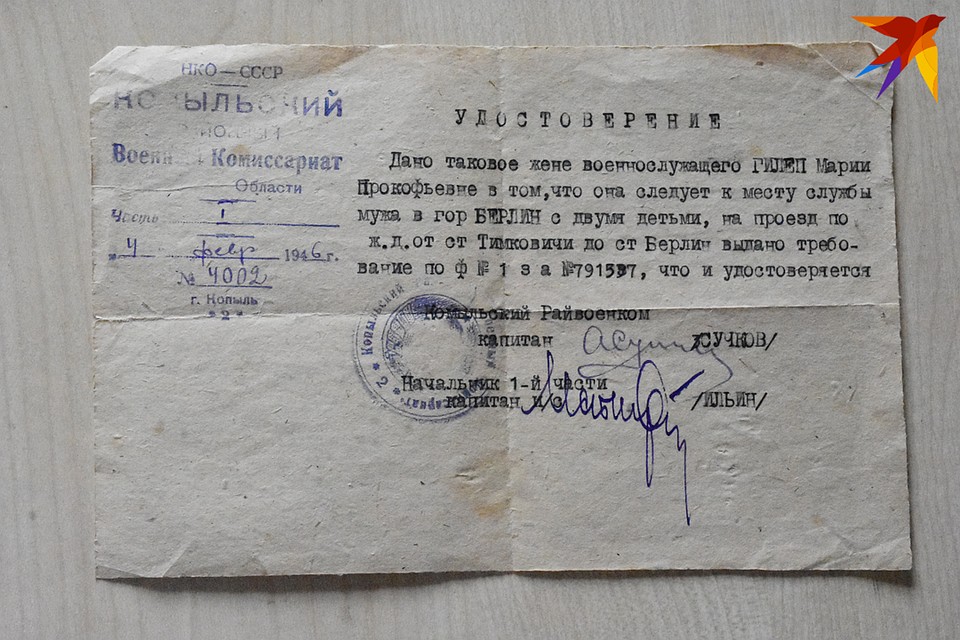 НКО—СССР
КОПЫЛЬСКИЙ
Военный Комиссариат
Области
Часть I
„ 4 " февр 1946 г.
№ 4002
г. Копыль
"2"
УДОСТОВЕРЕНИЕ
Дано таковое жене военнослужащего ГИЛЕП Марии
Прокофьевне в том,что она следует к месту службы
мужа в гор БЕРЛИН с двумя детьми, на проезд по
ж.д.от ст Тимковичи до ст Берлин выдано требо-
вание по ф № 1 з а №791537, что и удостоверяется
Комыльский Райвоенком
капитан /СУЧКОВ/
Начальник 1-й части
капитан и/с /ИЛЬИН/
* 2 * Копыльский